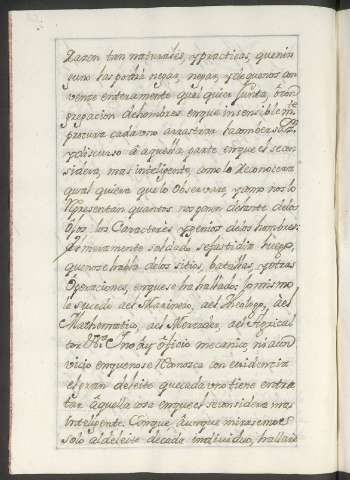 Razon tan naturales, y practicas, que nin
guno las podrá negar, negar, y de que nos con
vence enteramente qual quier Junta, ó con
gregacion de hombres en que insensiblem.te
procura cada uno arrastrar la combersaz.n
y discurso â aquella parte en que el se con
sidera, mas inteligente, como lo Reconocera
qual quiera que lo observare, y como nos lo
Representan quantos nos ponen delante de los
ojos, los Caracteres y genios de los hombres:
Primeramente soldado se fastidia luego,
que no se habla de los sitios, batallas, y otras
Operaciones, en que se ha hallado; lo mismo
le sucede al Marinero, al Theologo, al
Mathematico, al Mercader, al Agricul
tor &.ª I no ay officio mecanico, ni aun
vicio en que no se Reconosca con evidencia
el gran deleite que cada uno tiene en tra
tar â quella cosa en que el se considera mas
inteligente. Conque âunque mirasemos
solo al deleite de cada individuo, hallara